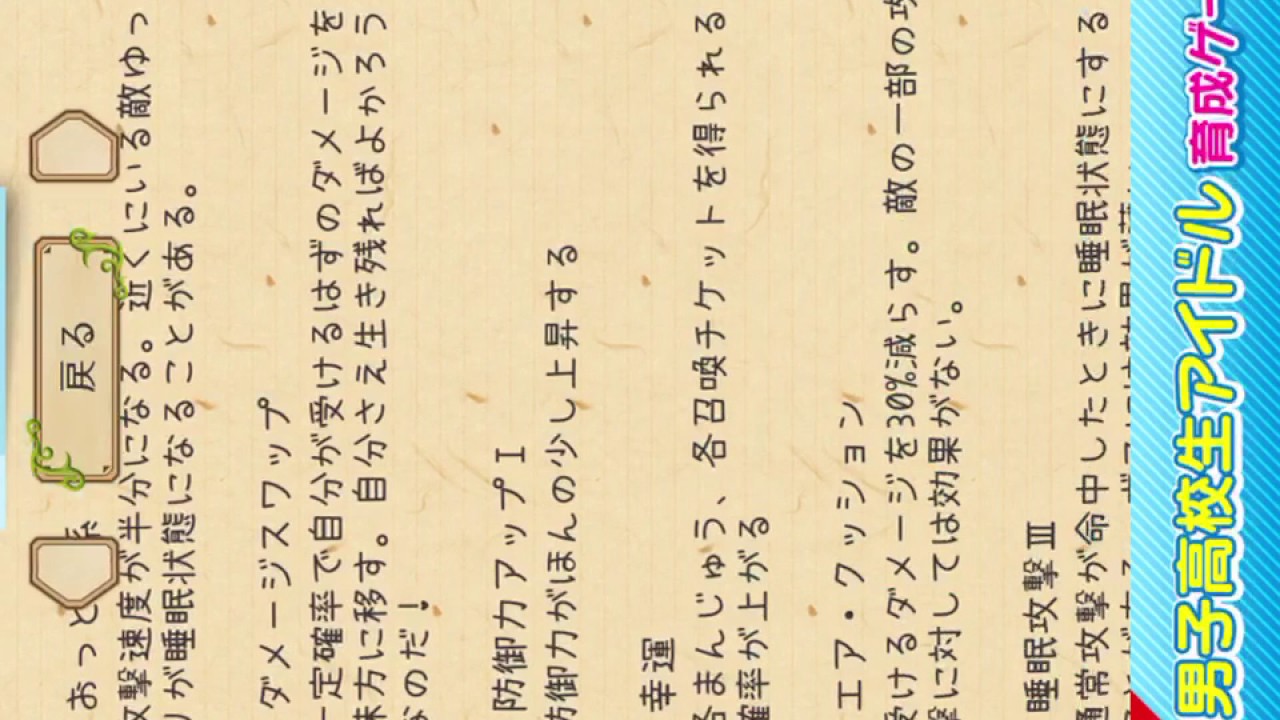 戻る
おっと
攻撃速度が半分になる。近くにいる敵ゆっ
りが睡眠状態になることがある。
ダメージスワップ
一定確率で自分が受けるはずのダメージを
味方に移す。自分さえ生き残ればよかろう
なのだ!
防御力アップⅠ
防御力がほんの少し上昇する
幸運
各まんじゅう、各召喚チケットを得られる
確率が上がる
エア・クッション
受けるダメージを30%減らす。敵の一部の攻
撃に対しては効果がない。
睡眠攻撃Ⅲ
通常攻撃が命中したときに睡眠状態にする
男子高校生アイドル育成ゲー